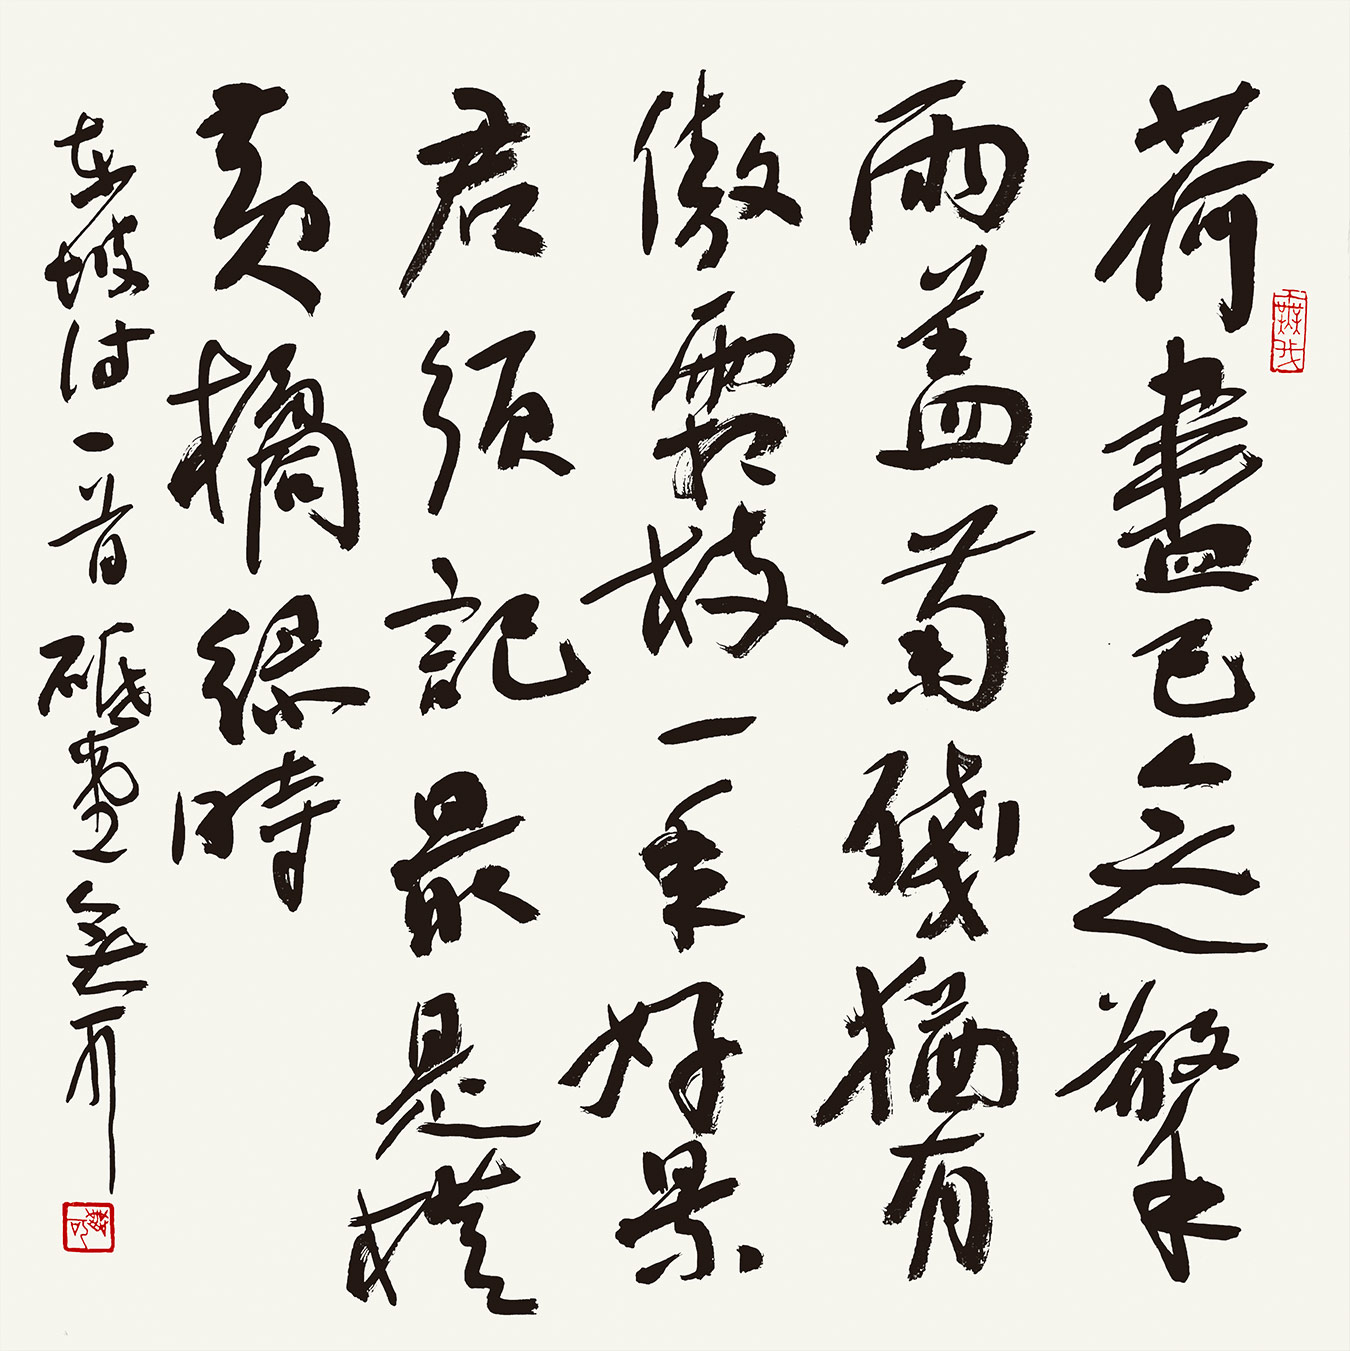 荷盡已無擎
雨蓋菊殘猶有
傲霜枝一年好景
君須記最是橙
黃橘綠時
東坡詩一首砥堂無可